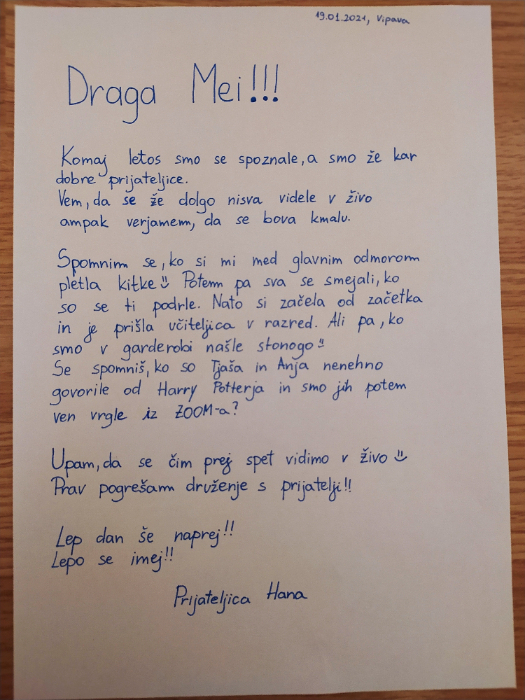 19.01.2021, Vipava
Draga Mei!!!
Komaj letos smo se spoznale, a smo že kar
dobre prijateljice.
Vem, da se že dolgo nisva videle v živo
ampak verjamem, da se bova kmalu.
Spomnim se, ko si mi med glavnim odmorom
pletla kitke Potem pa sva se smejali, ko
so se ti podrle. Nato si začela od začetka
in je prišla učiteljica v razred. Ali pa, ko
smo v garderobi našle stonogo
Se spomniš, ko so Tjaša in Anja nenehno
govorile od Harry Potterja in smo jih potem
ven vrgle iz ZOOM-a?
Upam, da se čim prej spet vidimo v živo
Prav pogrešam druženje s prijatelji!!
Lep dan še naprej!!
Lepo se imej!!
Prijateljica Hana